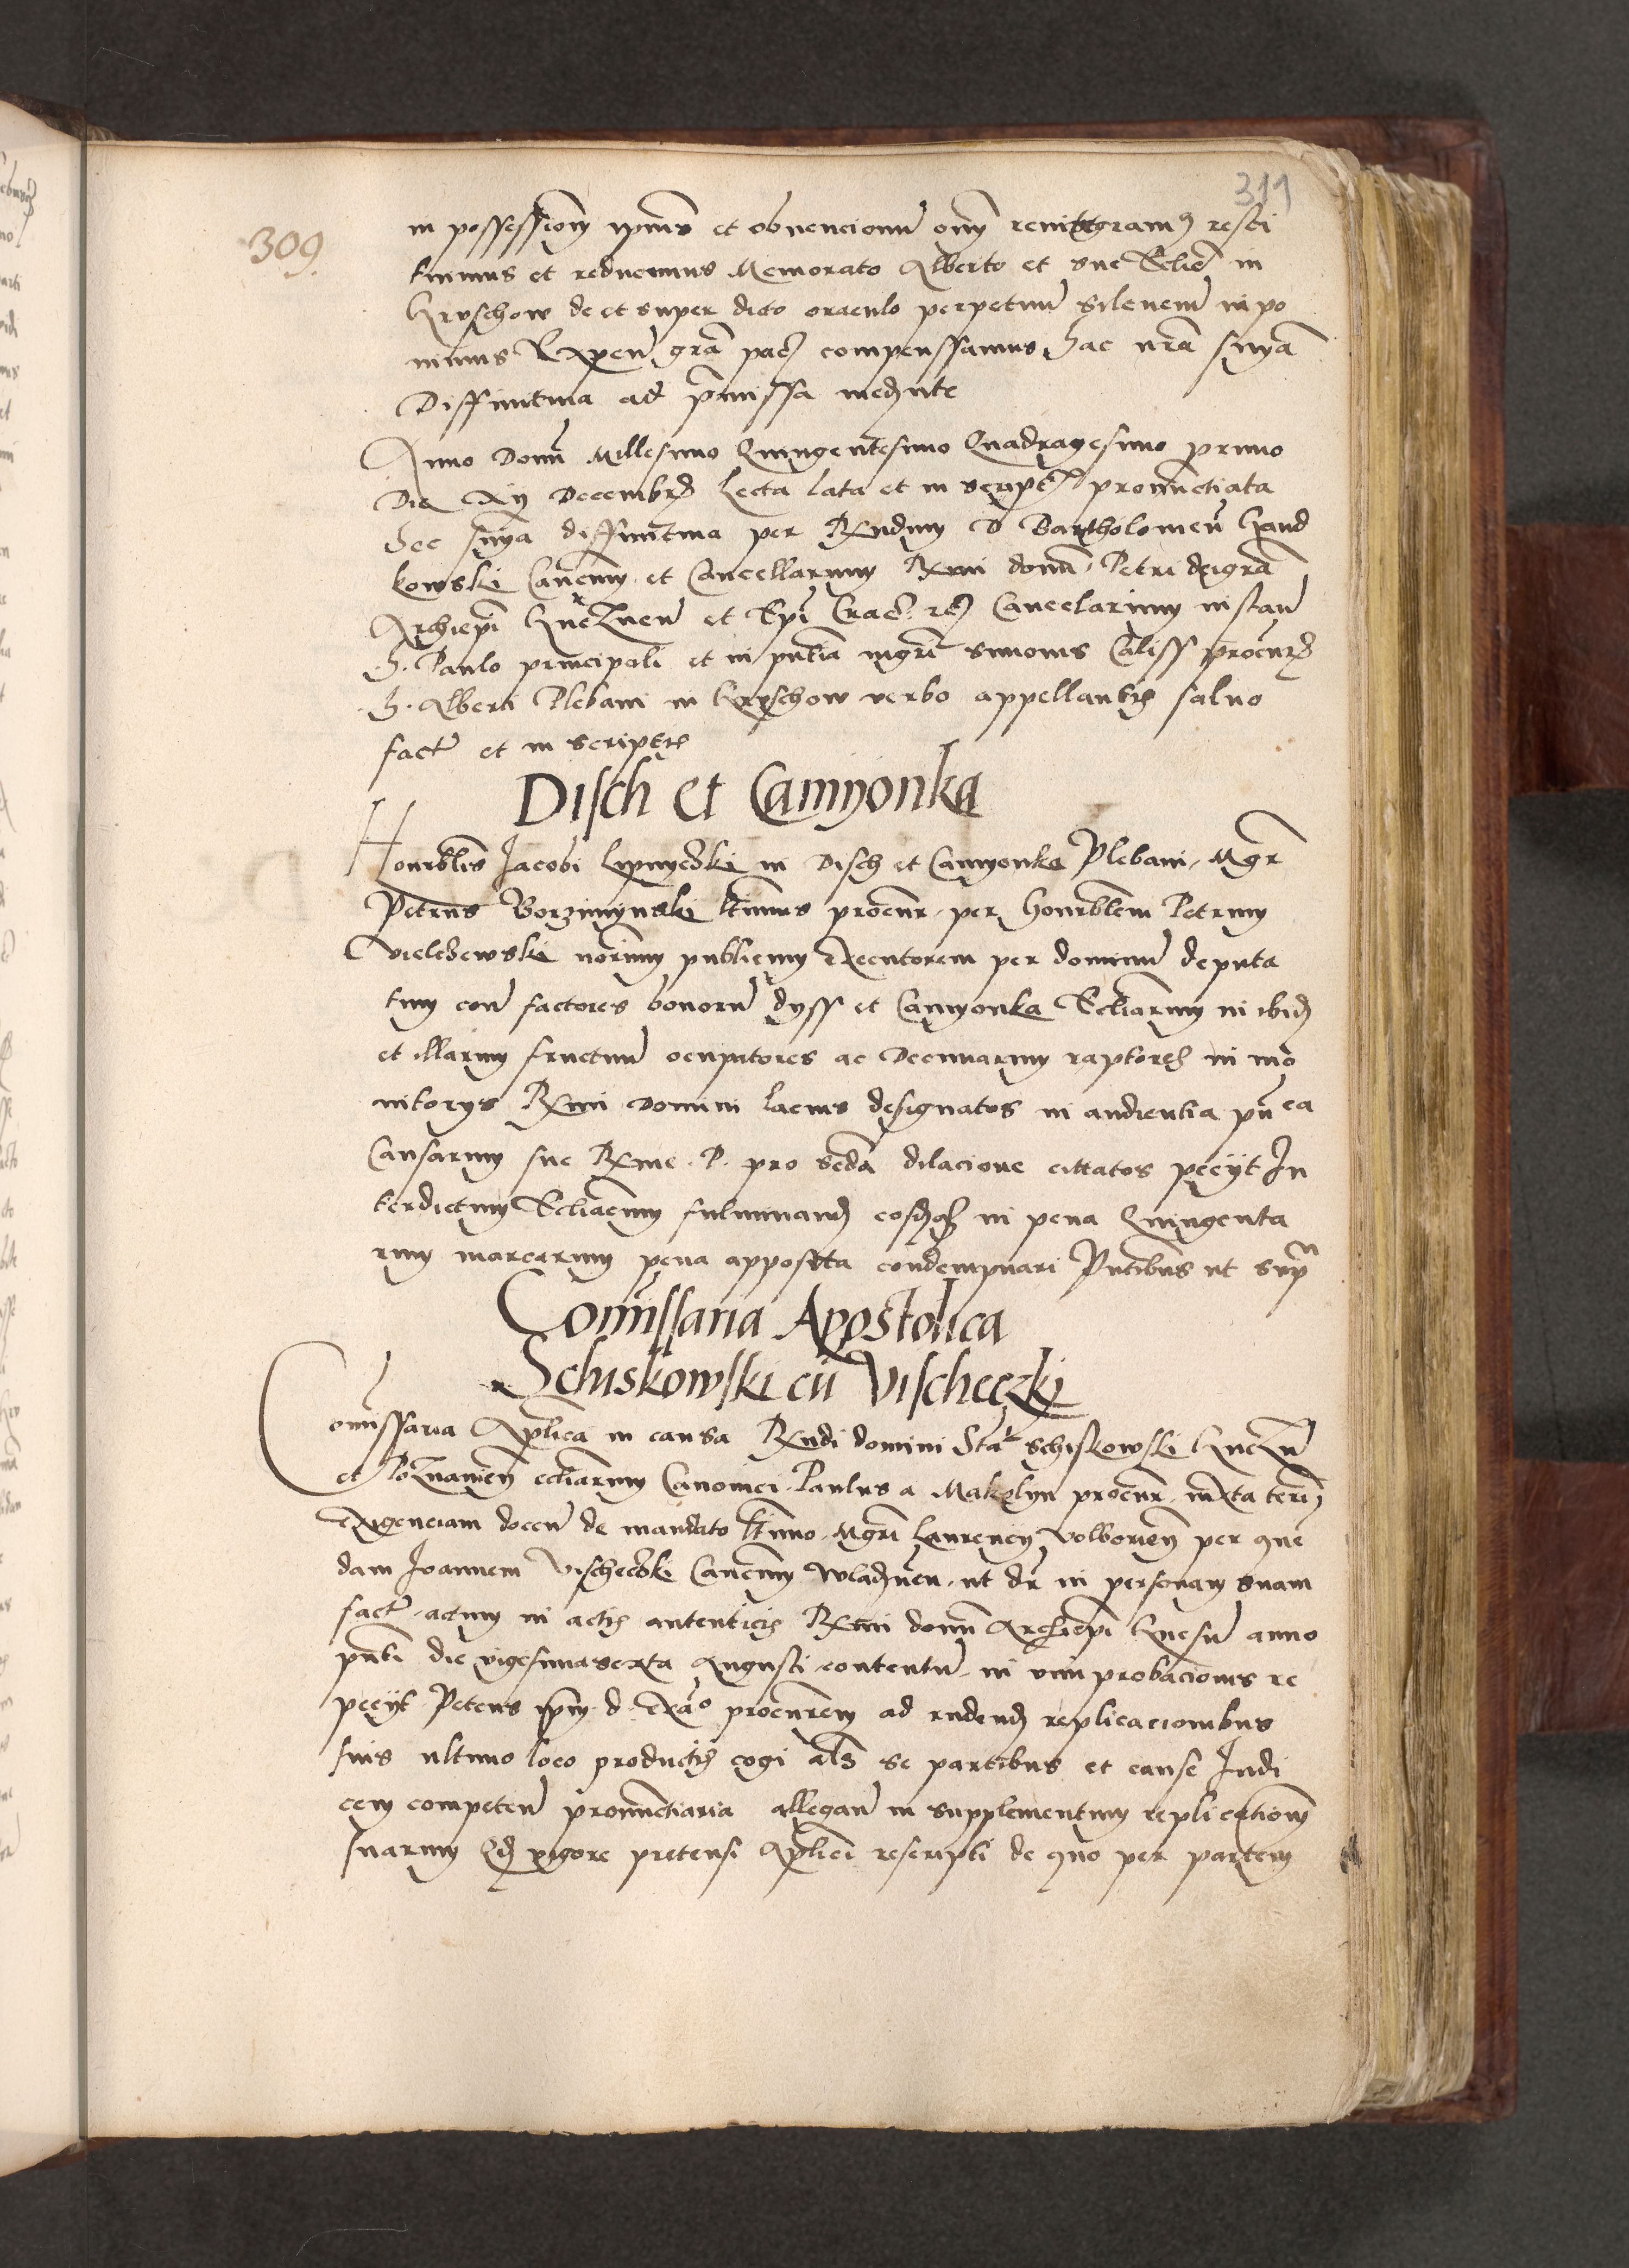 311
309.
in possessionem ipsius et obvencionum omnium reintegramus resti
tuimus et reducimus Memorato Alberto et sue Ecclesie in
Gruschow de et super dicto oraculo perpetuum silencium inpo
nimus Expen gra compenssamus Hac nrã sniã
Diffinitiva ad pmissa mediante
Anno Domi Millesimo Quingentesimo Quadragesimo primo
Die Decembris Lecta lata et in scriptis pronuctiata
Hec snia diffinitiva per Rndum D Bartholomeu Gand
kowski Canonicum et Cancellarium Rmi domi Petri deigra
Archiepi Gneznen et Epi Crac Cancelarium instan
H. Paulo principali et in pntia mgri Simonis Caliss procurs
H. Alberti Plebani in Gruschow verbo appellantis salvo
factu et in scriptis
Disch et Camyonka
Honrblis Jacobi Lipnyczki in Disch et Camyonka Plebani Mgr
Petrus Borzimynski procur per Honrblem Petrum
Vielczewski norium publicum executorem per dominum deputa
tum con factores bonorum dyss et Camyonka Eccliarum in ibid
et illarum fructuum ocupatores ac Decimarum raptores in mo
nitorys Rmi Domini lacius designatos in audientia pn ca
Causarum sue Rme P. pro scda dilacione cittatos peciit In
terdictum Eccliacum fulminand eosdq in pena Quingenta
rum marcarum pena apposita condempnari Pntibus ut supr
Comissaria Apostolica
Schiskowski cu Vischeczki
Comissaria Aplica in causa Rndi domini Sta schiskowski Gnezn
et Poznanien ecliarum Canonici Paulus a Makolyn procur iuxta term
exigenciam docen de mandato Mgri Laurency Volborien per que
dam Joannem Vischeczki Canonicum Wladislavien ut dr in personam suam
factu actum in actis autenticis Rmi domi Archiepi Gnesn anno
pnti die vigesimasexta Augusti contentum in vim probacionis re
peciit Petens ipm d procurem ad rndend replicacionibus
suis ultimo loco productis cogi als se partibus et cause Judi
cem competen pronuctiaria allegan in supplementum replicationum
suarum Qd vigore pretensi Aplici rescripti de quo per partem